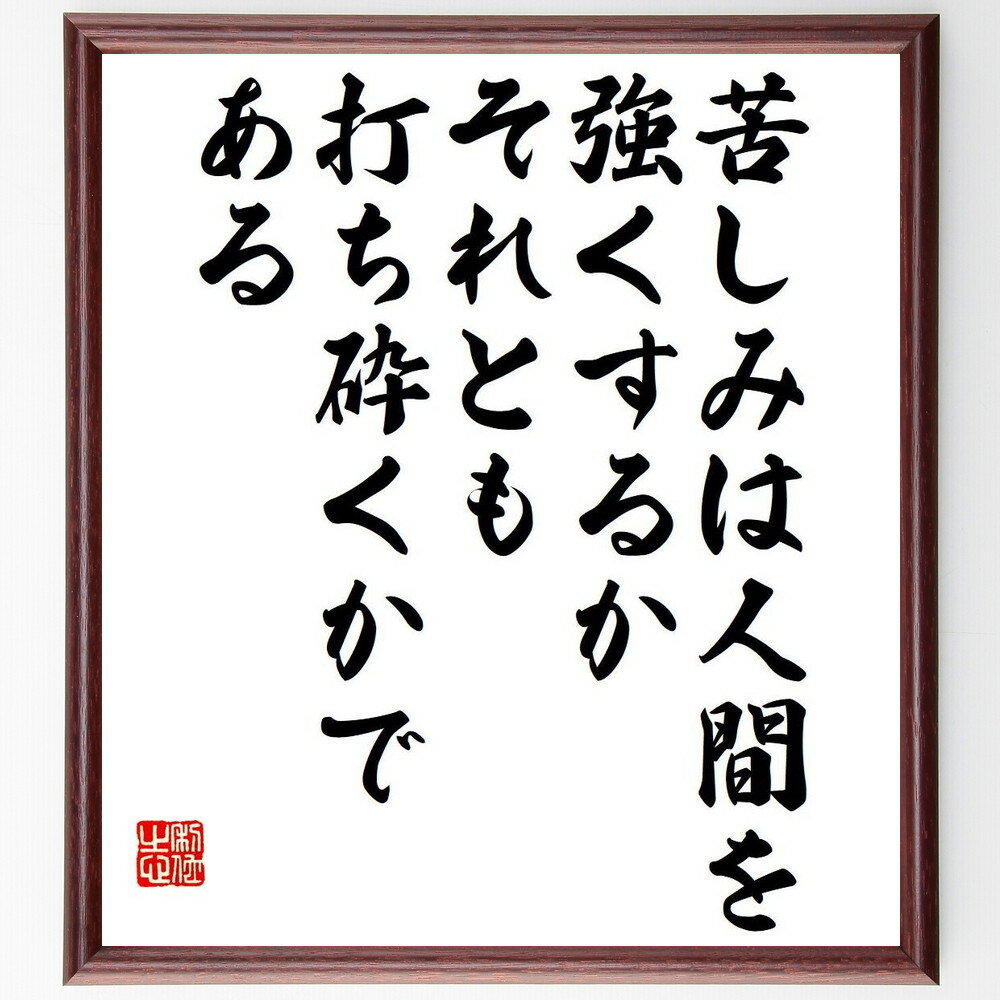 苦しみは人間を
強くするか
それとも
打ち砕くかで
ある